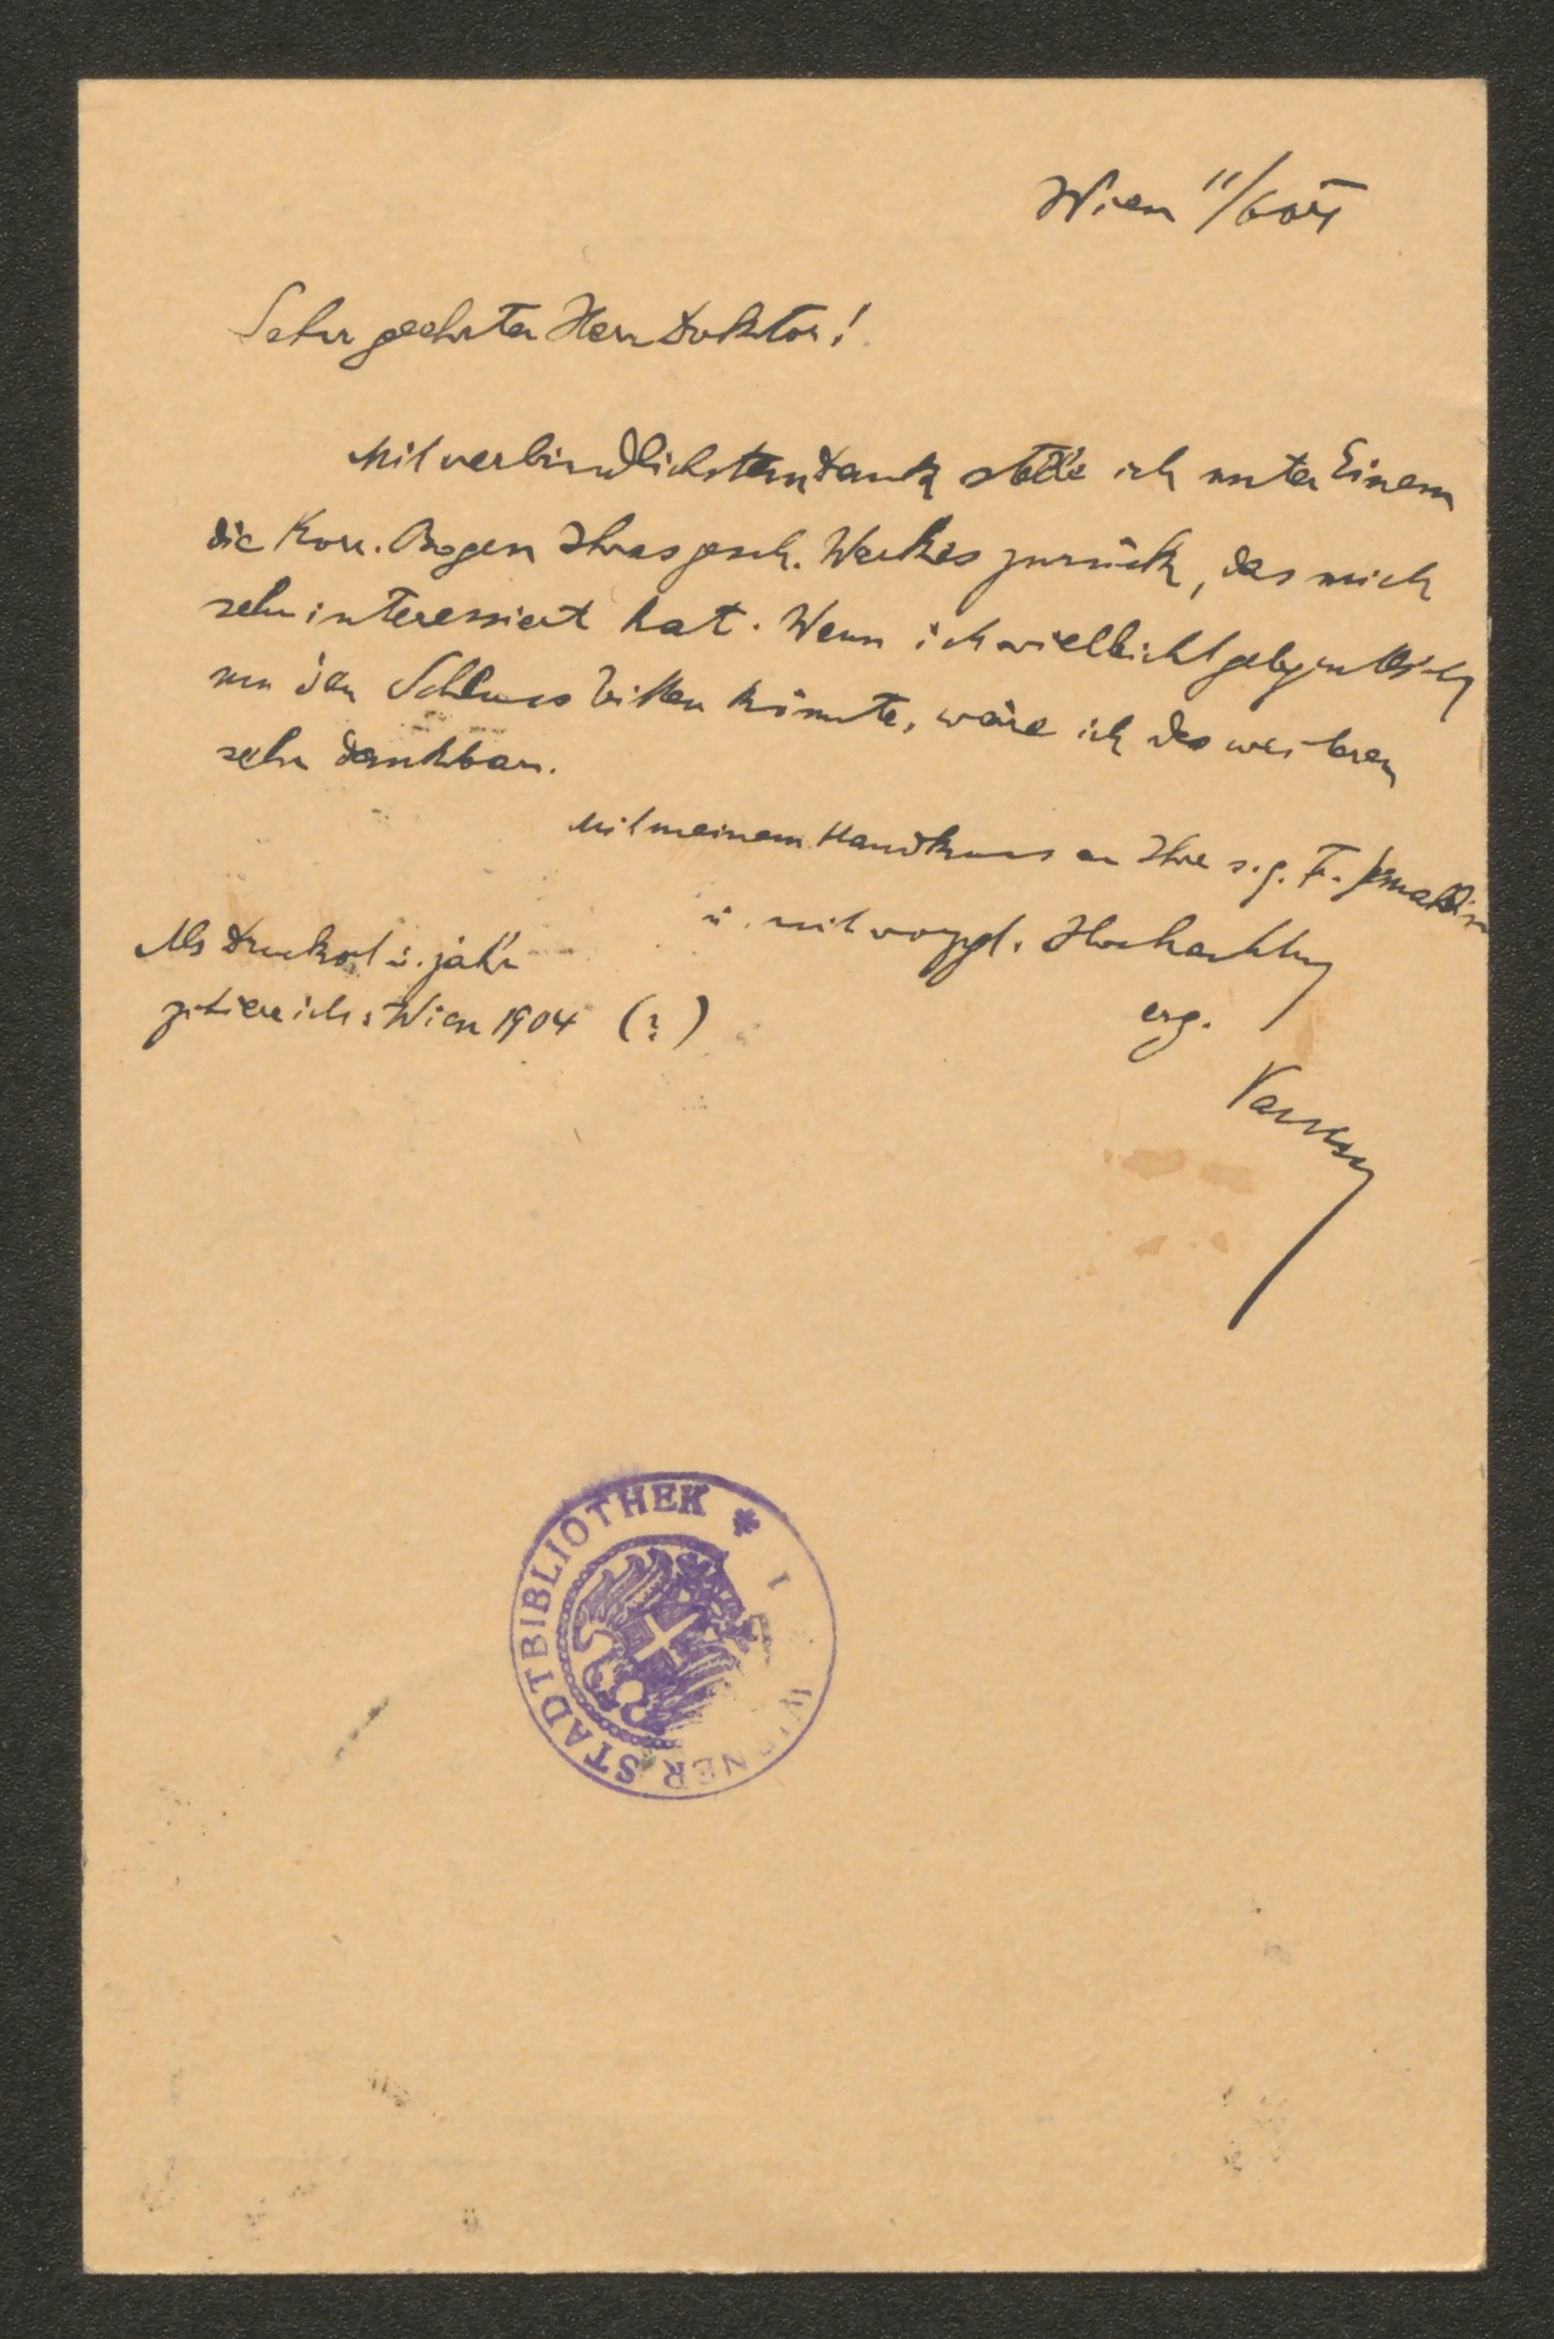 Wien 11/6 04
Sehr geehrter Herr Doktor!
Mit verbindlichstem Dank stelle ich unter Einem
die Korr. Bogen Ihres gesch. Werkes zurück, das mich
sehr interessiert hat. Wenn ich vielleicht gelegentlich
um den Schluss bitten könnte, wäre ich des weiteren
sehr dankbar.
Mit meinem Handkuss an Ihre s. g. F. Gemahlin
u. mit vorzgl. Hochachtung
erg.
Als Druckort u. jahr
zitiere ich: Wien 1904 (?)
WIENER STADTBIBLIOTHEK *